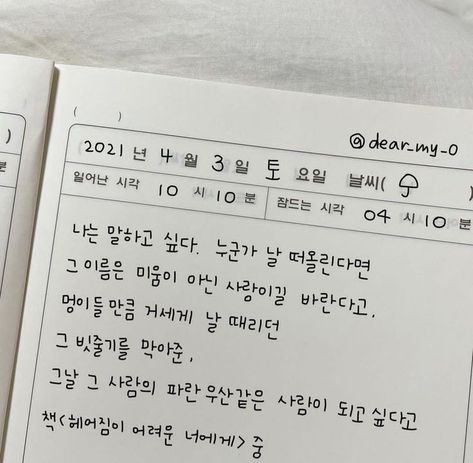 (        )
@dear_my_o
)
2021 년 4 월 3 일 토 요일 날씨( ☂ )
분
일어난 시각 10 시 10 분 잠드는 시각 04 시 10 분
나는 말하고 싶다. 누군가 날 떠올린다면
그 이름은 미움이 아닌 사랑이길 바란다고.
멍이들만큼 거세게 날 때리던
그 빗줄기를 막아준,
그날 그 사람의 파란 우산같은 사람이 되고 싶다고
책<헤어짐이 어려운 너에게> 중